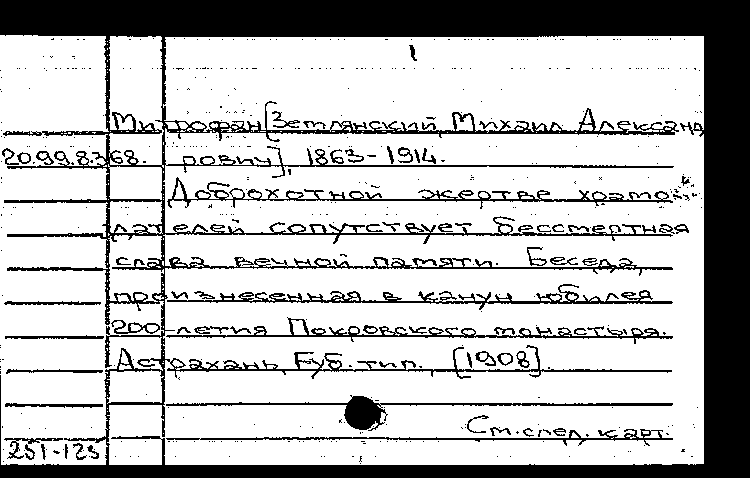 1
Митрофан [Землянский, Михаил Александ
20.99.8.368. рович], 1863-1914.
Доброхотной жертве храмо
дателей сопутствует бессмертная
слава вечной памяти. Беседа,
произнесенная в канун юбилея
200-летия Покровского монастыря.
Астрахань, Губ. тип., [1908].
См. след. карт.
251-125